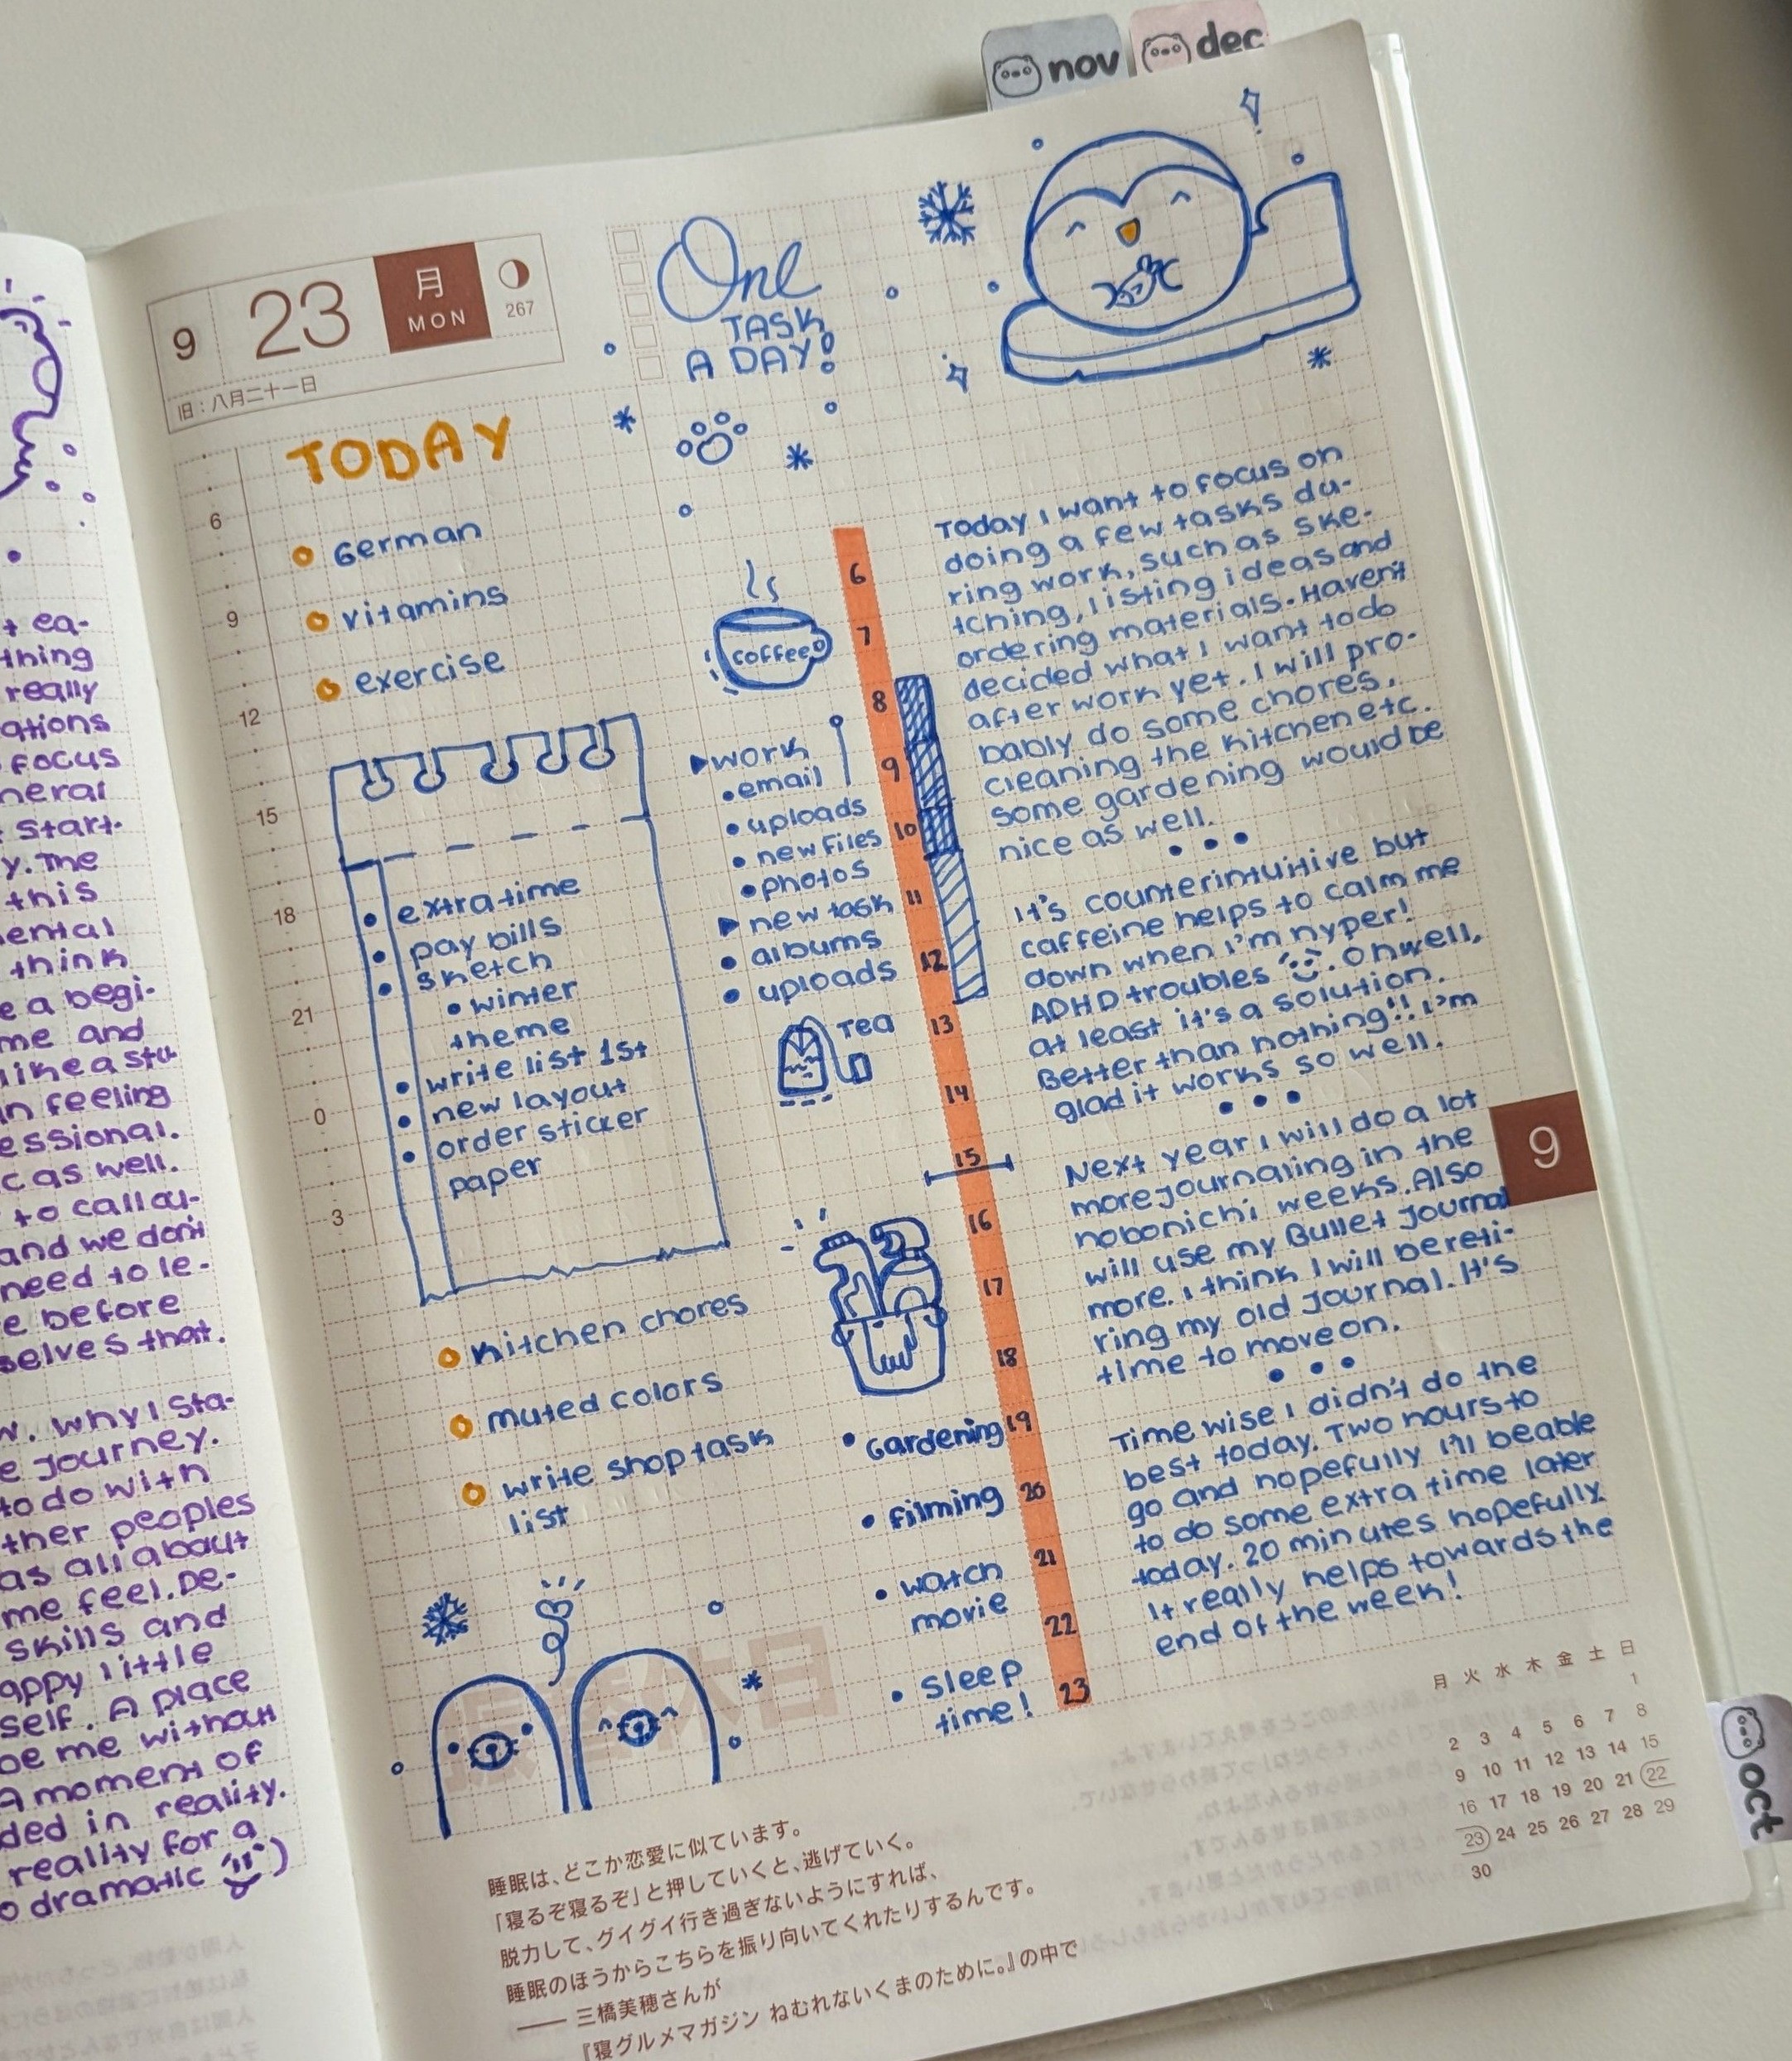 nov
dec
9
23
月
MON
267
旧：八月二十一日
One
TASK
A DAY!
TODAY
German
vitamins
exercise
6
9
12
15
18
21
0
3
extra time
pay bills
sketch
winter
theme
write list 1st
new layout
order sticker
paper
kitchen chores
muted colors
write shop task
list
coffee
work
email
uploads
new files
photos
new task
albums
uploads
TEA
Gardening
filming
watch
movie
sleep
time!
6
7
8
9
10
11
12
13
14
15
16
17
18
19
20
21
22
23
Today I want to focus on
doing a few tasks du-
ring work, such as ske-
tching, listing ideas and
ordering materials. Haven't
decided what I want to do
after work yet. I will pro-
bably do some chores,
cleaning the kitchen etc.
Some gardening would be
nice as well.
It's counterintuitive but
caffeine helps to calm me
down when I'm hyper!
ADHD troubles. Oh well,
at least it's a solution.
Better than nothing!! I'm
glad it works so well.
Next year I will do a lot
more journaling in the
hobonichi weeks. Also
will use my Bullet Journal
more. I think I will be reti-
ring my old journal. It's
time to move on.
Time wise I didn't do the
best today. Two hours to
go and hopefully I'll be able
to do some extra time later
today. 20 minutes hopefully.
It really helps towards the
end of the week!
9
月 火 水 木 金 土 日
1
2 3 4 5 6 7 8
9 10 11 12 13 14 15
16 17 18 19 20 21 22
23 24 25 26 27 28 29
30
oct
睡眠は、どこか恋愛に似ています。
「寝るぞ寝るぞ」と押していくと、逃げていく。
脱力して、グイグイ行き過ぎないようにすれば、
睡眠のほうからこちらを振り向いてくれたりするんです。
―― 三橋美穂さんが
『寝グルメマガジン ねむれないくまのために。』の中で
thing
really
ations
focus
start-
y. The
this
think
e a begi-
me and
like a stu-
in feeling
essional.
c as well.
to call ou-
and we don't
need to le-
e before
selves that.
w. Why I sta-
e journey.
to do with
ther peoples
as all about
me feel. De-
skills and
appy little
self. A place
be me without
A moment of
ded in reality.
reality for a
o dramatic )